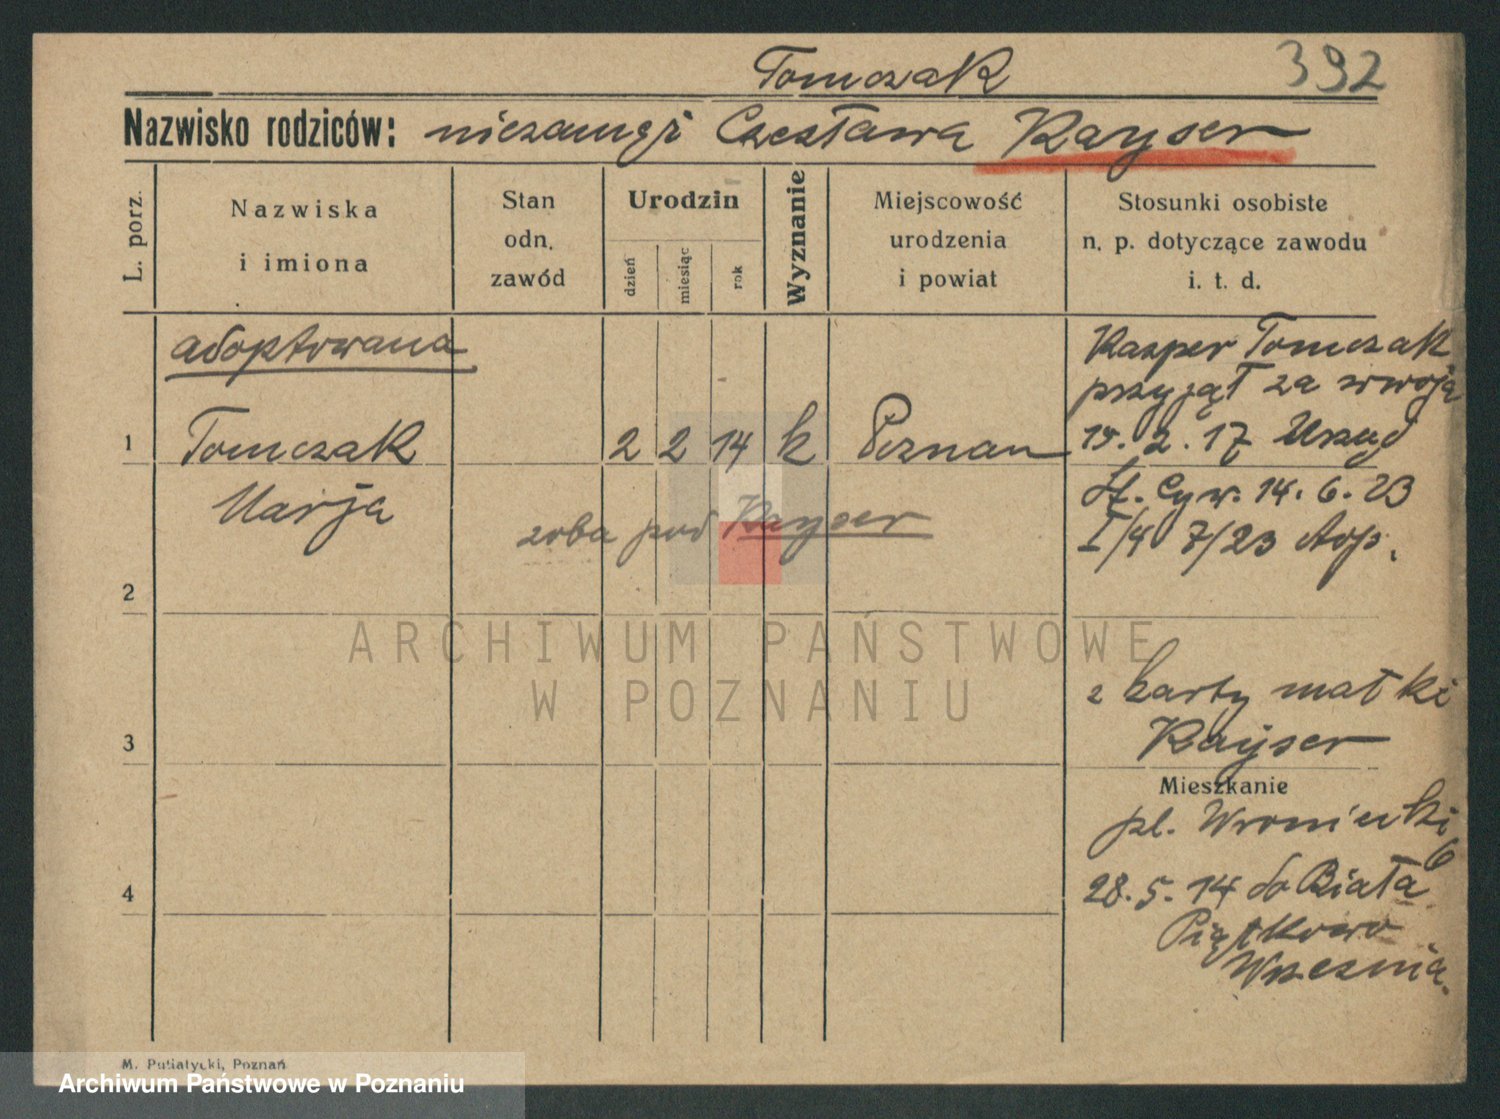 Tomczak
392
Nazwisko rodziców: niezamęż Czesława Kayser
L. porz.
Nazwiska
i imiona
Stan
odn.
zawód
Urodzin
dzień
miesiąc
rok
Wyznanie
Miejscowość
urodzenia
i powiat
Stosunki osobiste
n. p. dotyczące zawodu
i. t. d.
adoptowana
1 Tomczak 2 2 14 k Poznan
Marja
zoba pod Kayser
Kasper Tomczak
przyjął za swoją
15. 2. 17 Urząd
St. Cyw. 14. 6. 23
I/4 7/23 Adp.
2
z karty matki
Kayser
3
Mieszkanie
pl. Wroniecki
6
28. 5. 14 do Biała
Piątkowo
Wrzesnia.
4
M. Putiatycki, Poznań
ARCHIWUM PAŃSTWOWE
W POZNANIU
Archiwum Państwowe w Poznaniu